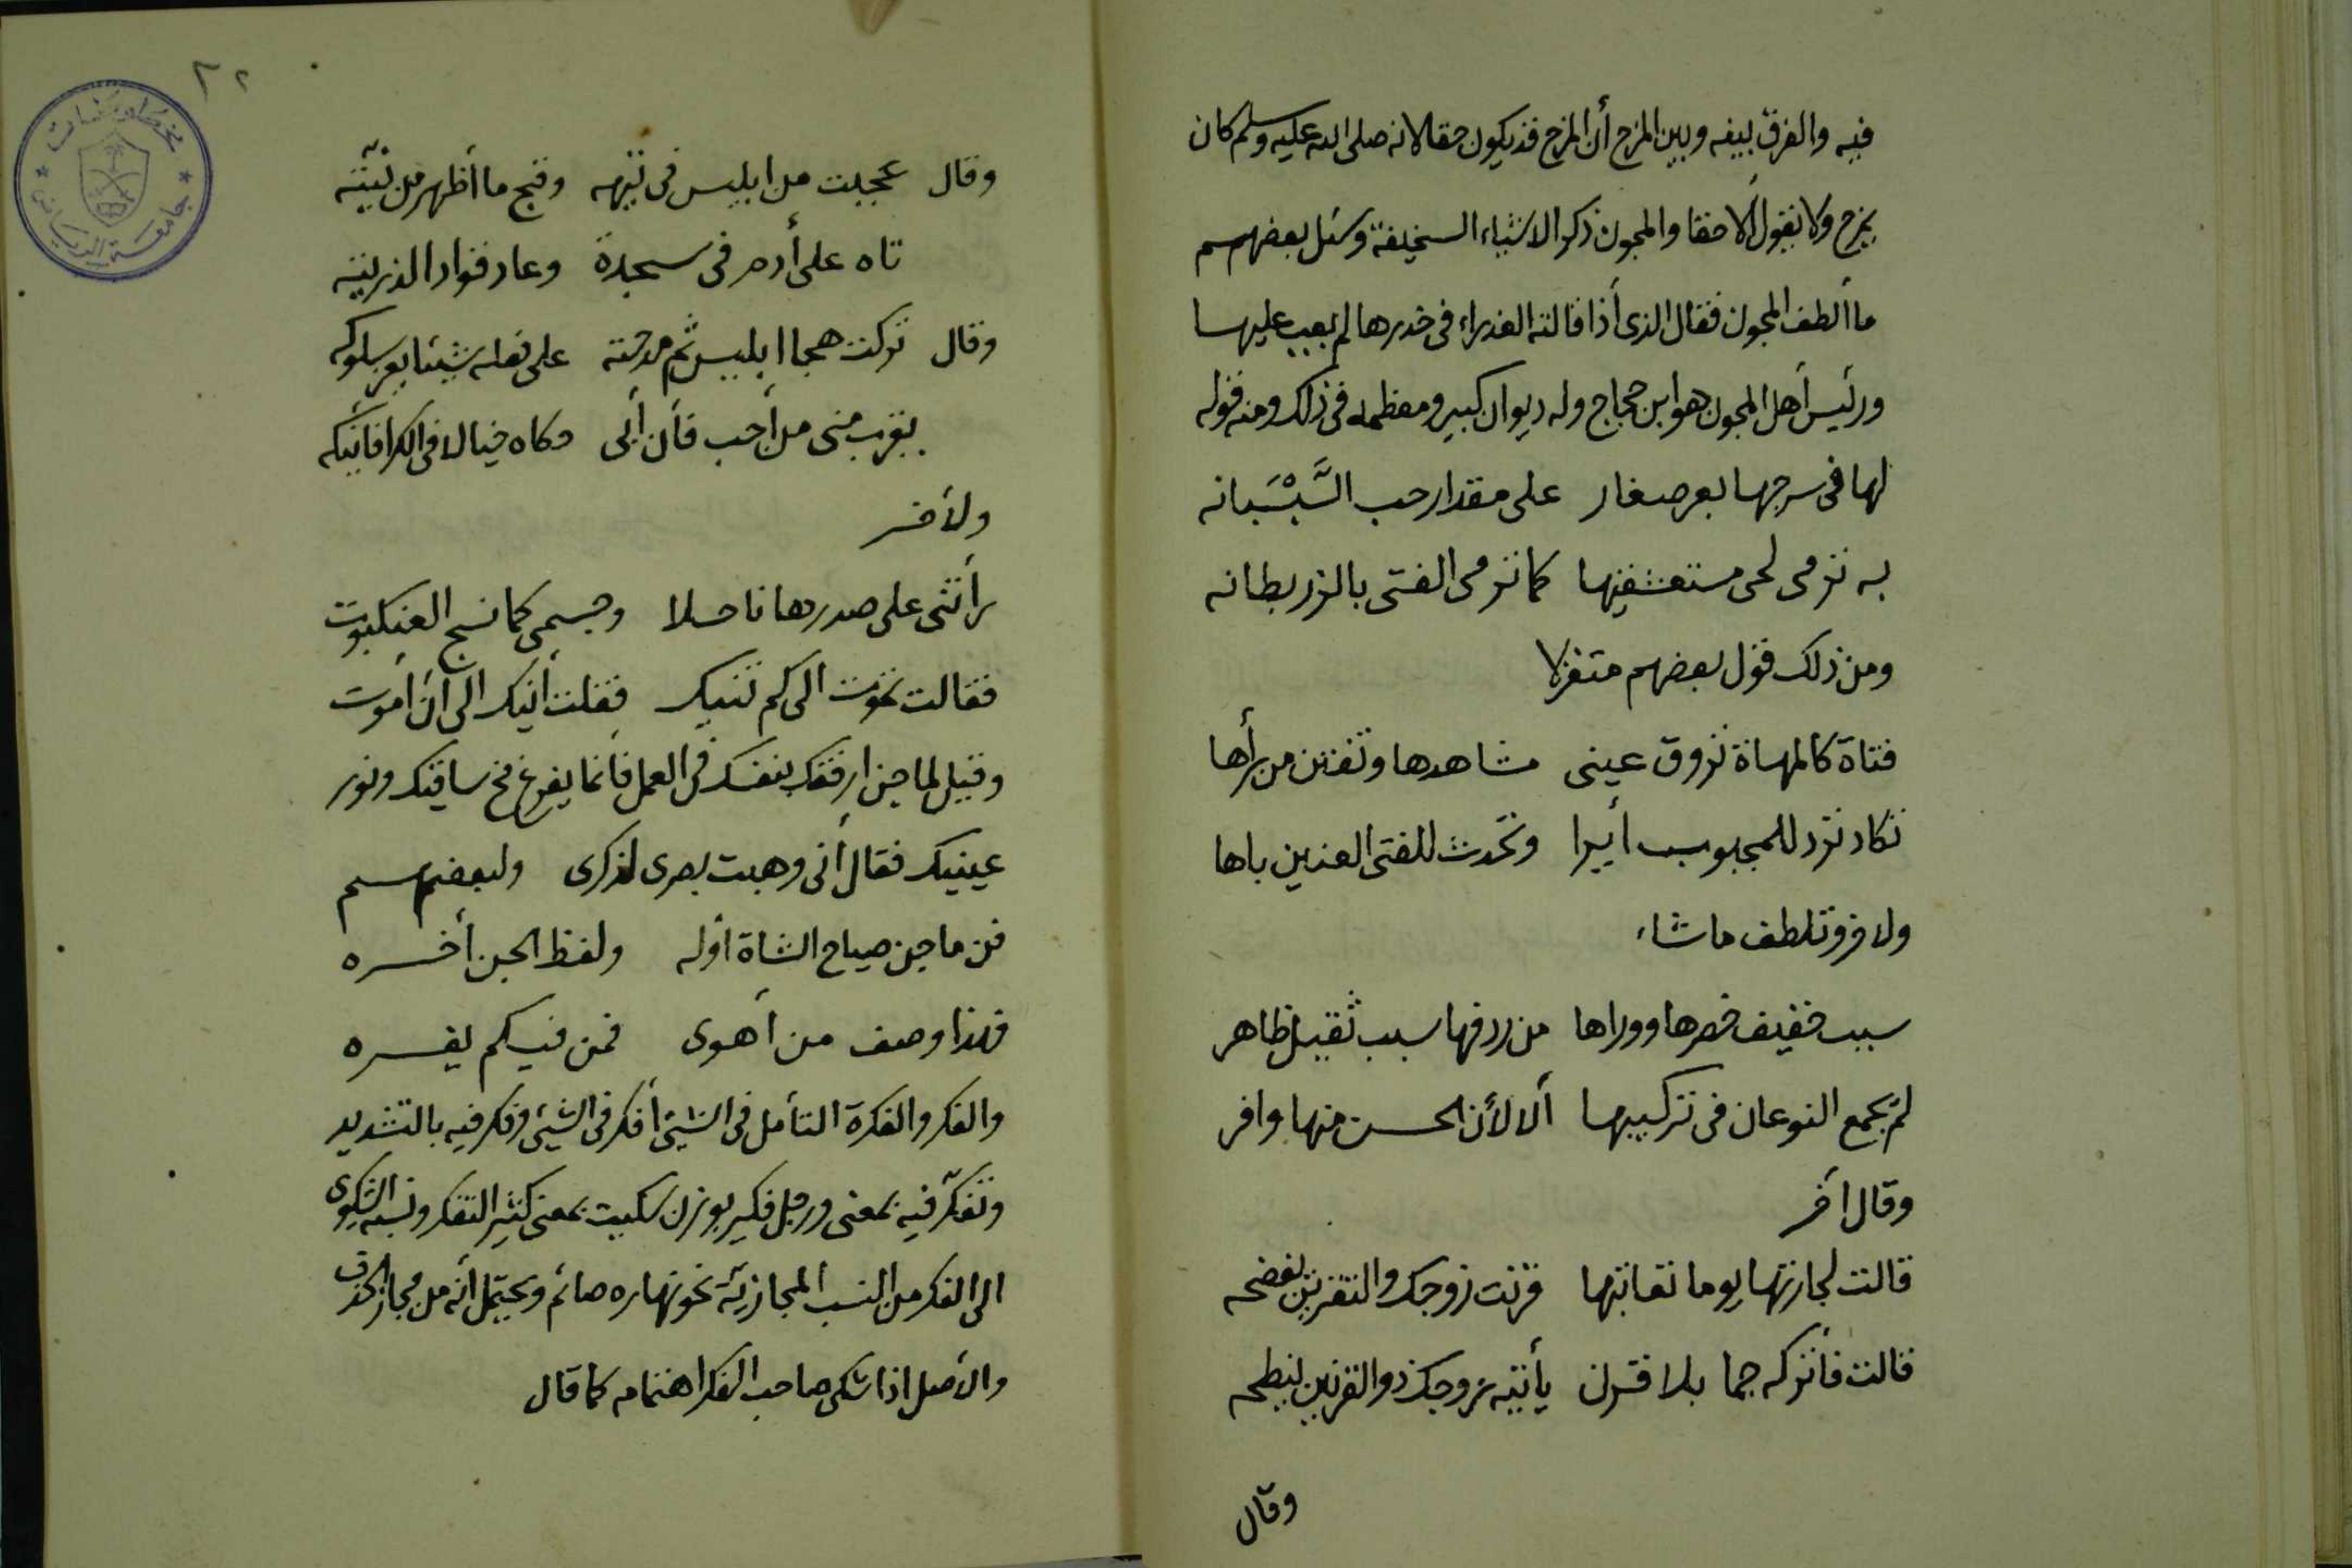 فيه والفرق بينه وبين المزح أن المزح قد يكون حقا لانه صلى الله عليه وسلم كان
يمزح ولا يقول ألا حقا والمجون ذكر الاشياء السخيفة وسئل بعضهم
ما ألطف المجون فقال الذى أذا قالته العذراء فى خدرها لم يعب عليها
ورئيس أهل المجون هو ابن حجاج وله ديوان كبير ومعظمه فى ذلك ومنه قوله
لها فى سرجها بعر صغار على مقدار حب السَّيْسَبانه
به ترمى لحى مستعشقيها كما ترمى الفتى بالزربطانه
ومن ذلك قول بعضهم متغزلا
فتاة كالمهاة تروق عينى مشاهدها وتفتن من رأها
تكاد ترد للمجبوب أيرا وتحدث للفتى العنين باها
ولاخر وتلطف ماشاء
سبب خفيف خصرها ووراها من ردفها سبب ثقيل ظاهر
لم يجمع النوعان فى تركيبها ألا لأن الحسن منها وافر
وقال أخر
قالت لجارتها يوما تعاتبها قرنت زوجك والتقرين يفضحه
قالت فأتركه جما بلا قرن يأتيه زوجك ذو القرنين ينطحه
وقال
٢٢
مخطوطات
جامعة الرياض
وقال عجبت من ابليس فى تيهه وقبح ما أظهر من نيّته
تاه على أدم فى سجدة وعاد قوادا لذريته
وقال تركت هجا ابليس ثم مدحته على فعله شيئا يعز سلوكه
يقرب منى من أحب فأن أبى حكاه خيالا فى الكرا فأنيكه
ولأخر
رأتنى على صدرها ناحلا وجسمى كما نسج العنكبوت
فقالت تموت الى كم تنيك فقلت أنيك الى أن أموت
وقيل لماجن ارفق بنفسك فى العمل فأنما يفرغ مخ ساقيك ونور
عينيك فقال أنى وهبت بصرى لذكرى ولبعضهم
فن ماجن صياح الشاة أوله ولفظ الجن أخره
فهذا وصف من أهوى فمن فيكم يفسره
والفكر والفكرة التأمل فى الشيئ أفكر فى الشيئ وفكر فيه بالتشديد
وتفكّر فيه بمعنى ورجل فكير بوزن سكيت بمعنى كثير التفكر ونسبة الشكوى
الى الفكر من النسب المجازيّة نحو نهاره صائم ويحتمل أنه من مجاز الحذف
والأصل اذا شكى صاحب الفكر اهتمامه كما قال